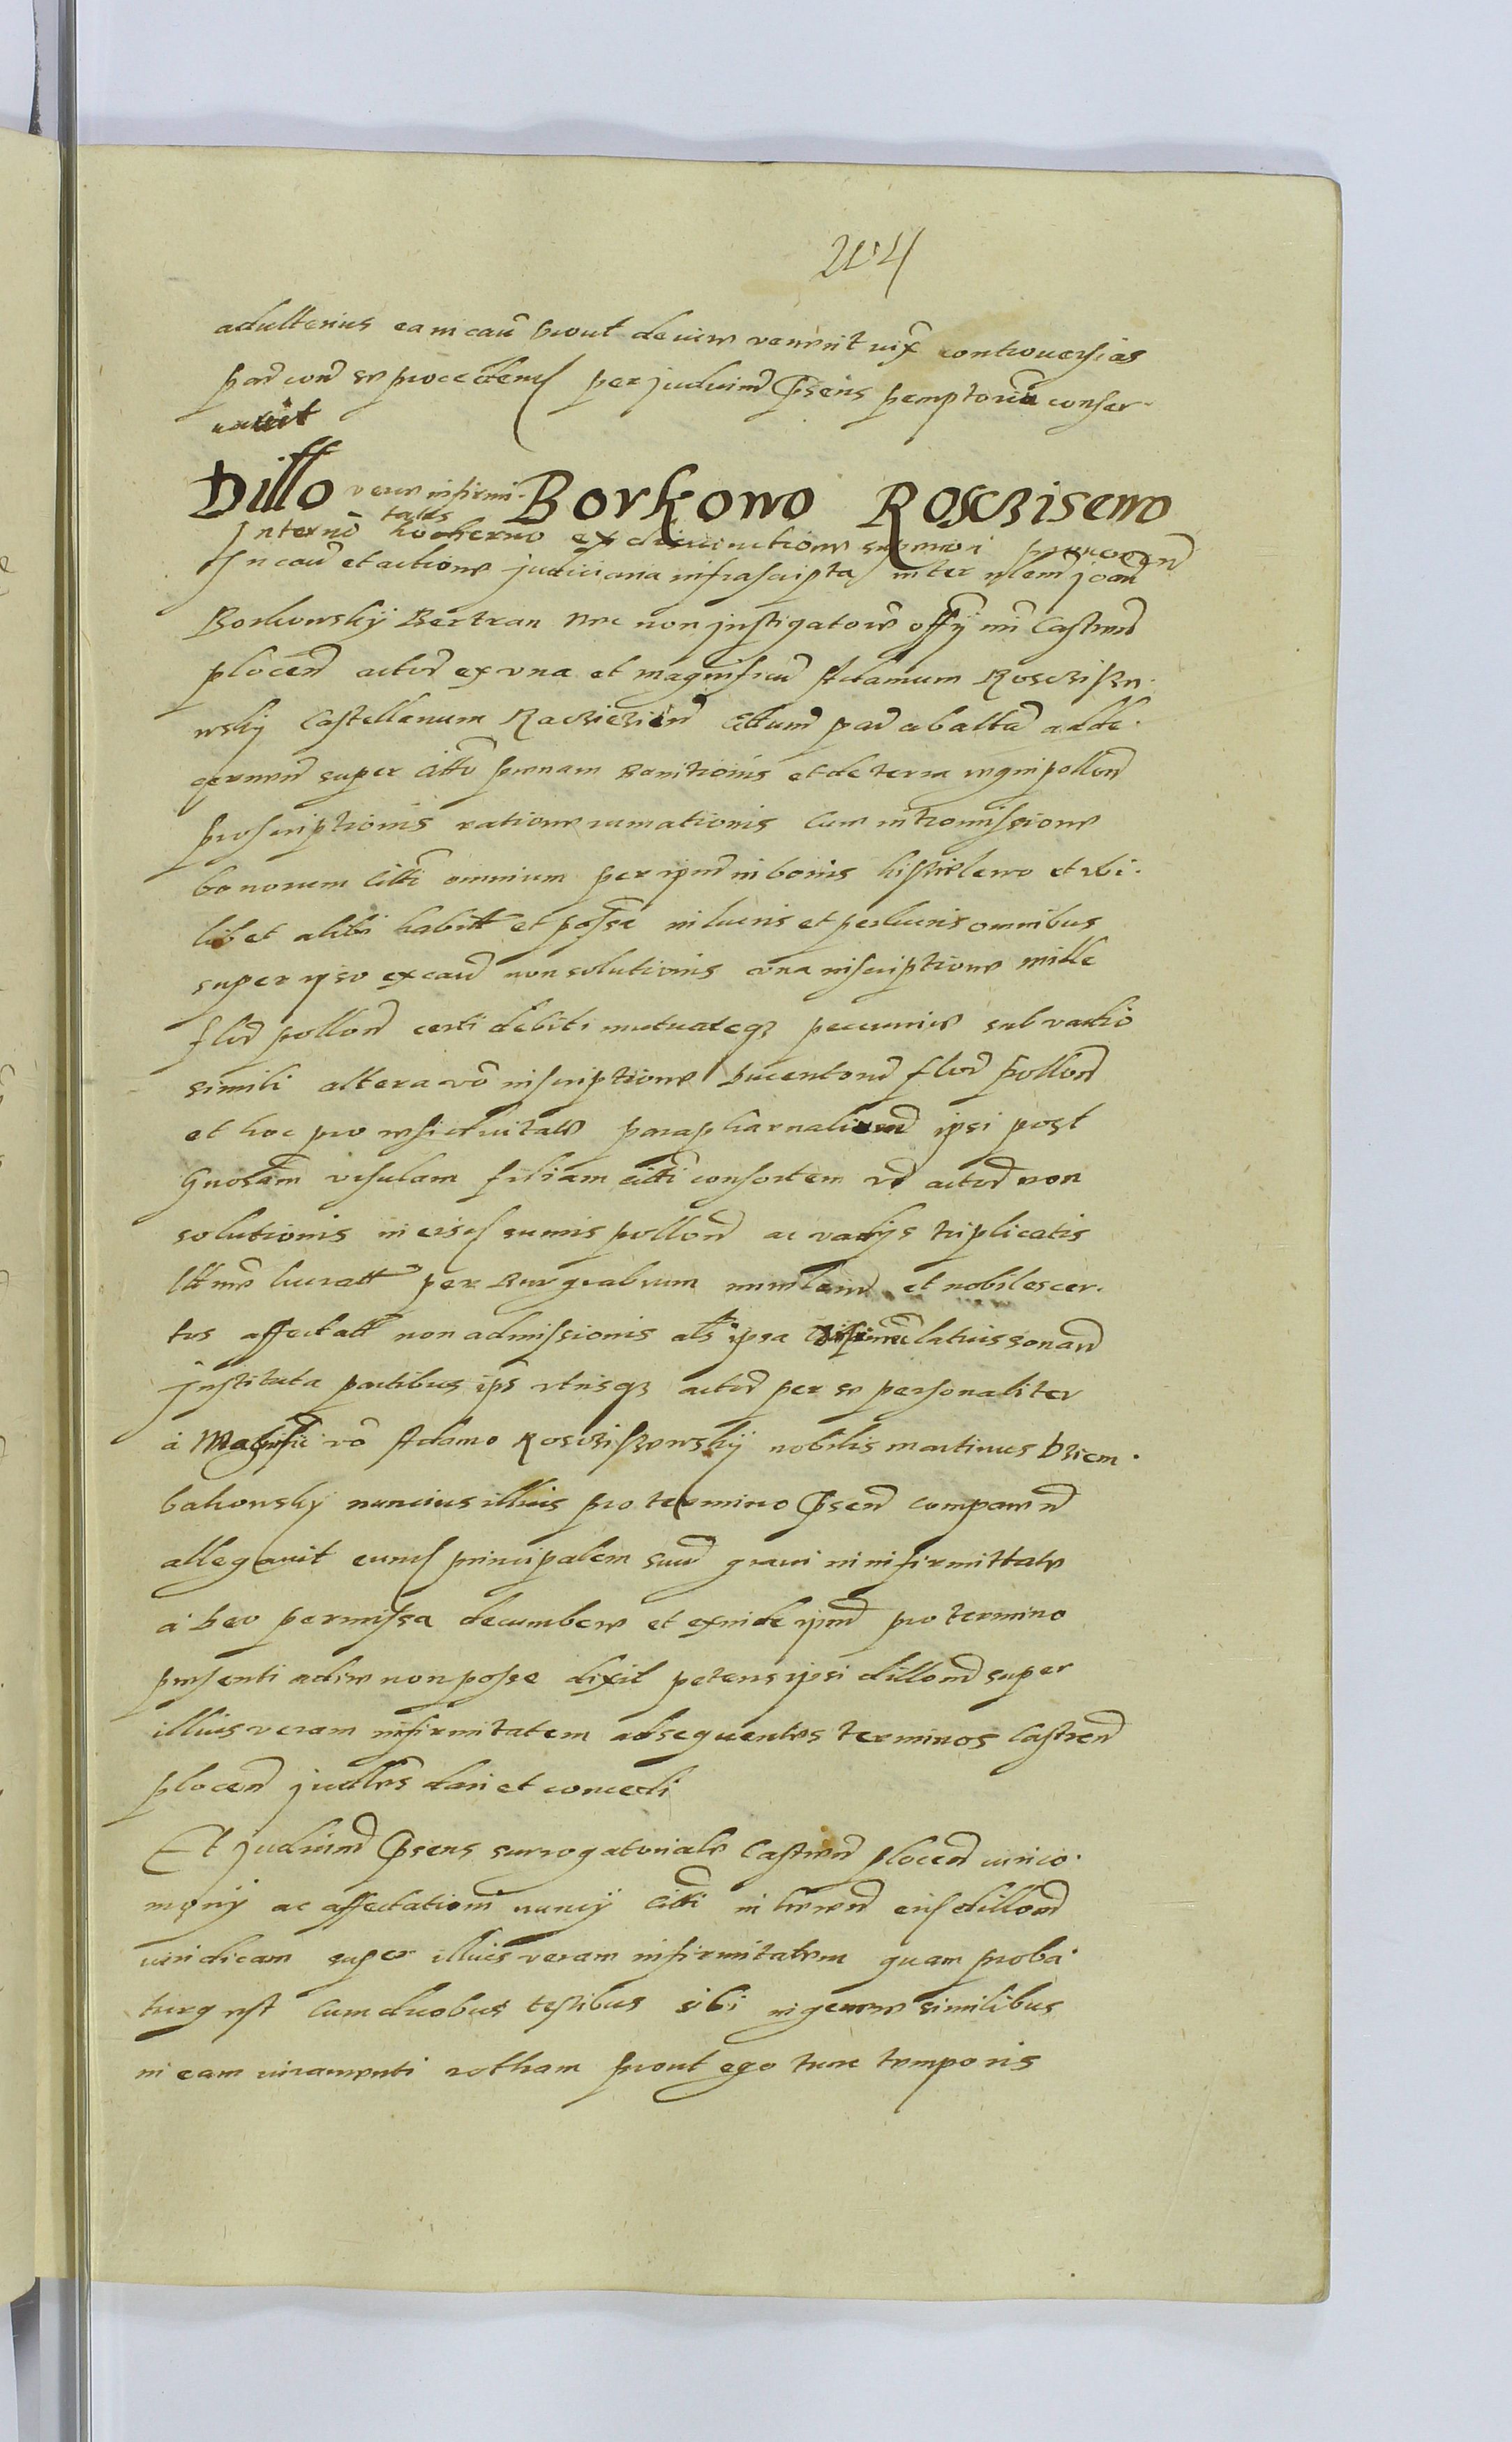 204
adulterius ea in cau prout de iure venerit iux controuersias
par con se procedens per judicium pñs peremptorie conser-
uauit
Dillo vere infirmi- Borkowo Rosczisewo
tatis
In termino hodierno ex
In cau et actione judiciaria infrascripta inter nlem joan
Borkowsky Bertran nec non instigatore offÿ mi Castren
plocen actor ex vna et magnificum Adamum Roscisze-
wsky Castellanum Raczizien citatum par ab altera
super citti penam banitionis et de terra regni pollon
proscriptionis ratione cum intromissione
bonorum citti omnium per ipm in bonis et vbi-
libet alibi habitt et posse omnibus
super ipso ex cau non solutionis vna inscriptione mille
flor pollon certi debiti mutuateq pecunie sub vadio
simili altera vo inscriptione Ducentorum flor pollon
et hoc pro residuitate paraphernalium ipsi post
Gnosam vrsulam filiam citti consortem actor non
solutionis in eisd sumis pollon ac vadÿs triplicatis
per Burgrabium et nobiles cer-
tos affectatt non admissionis als ipsa latius sonan
instituta partibus ips vtrisq actor per se personaliter
a Magnifi vo Adamo Rosciszewskÿ nobilis martinus Dziem-
bakowsky nuncius illius pro termino pñsen comparen
allegauit eund principalem suum graui in infirmittate
a Deo permissa decumbere et exinde ipm pro termino
presenti adire non posse dixit petens ipsi dillom super
illius veram infirmitatem ad sequentes terminos Castren
plocen judles dari et concedi
Et judicium pñsens surrogatoriale Castren plocen
ac affectationi nuncÿ citti inheren eius dillom
super illius veram infirmitatem quam proba-
turq est Cum duobus testibus sibi in genere similibus
in eam iuramenti rotham prout ego tunc temporis